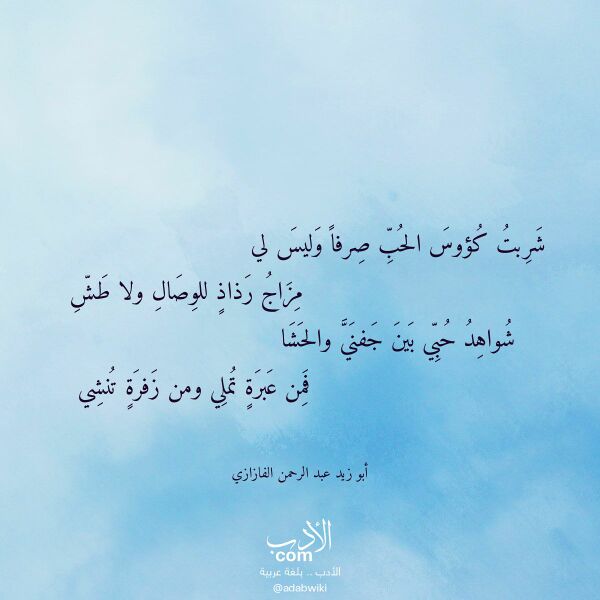 شَرِبتُ كُؤوسَ الحُبِّ صِرفاً وَليسَ لي
مِزَاجُ رَذاذٍ للوِصَالِ ولا طَشّ
شُواهِدُ حُبِّي بَينَ جَفنَيَّ والحَشَا
فَمِن عَبرَةٍ تُملِي ومن زَفرَةٍ تُنشِي
أبو زيد عبد الرحمن الفازازي
الأدب
com
الأدب .. بلغة عربية
@adabwiki